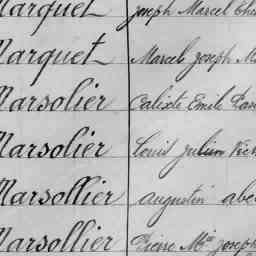 Marquet Joseph Marcel
Marquet Marcel Joseph
Marsolier Calixte Emile
Marsolier Louis Julien
Marsollier augustin
Marsollier Pierre Mie Joseph